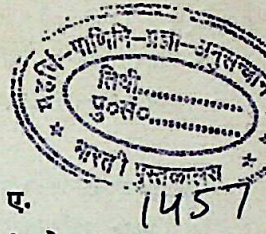 महर्षि-पाणिनि-प्रज्ञा-अनुसन्धान
तिथी..............
पु०सं०..............
भारती पुस्तकालय
ए. 1457